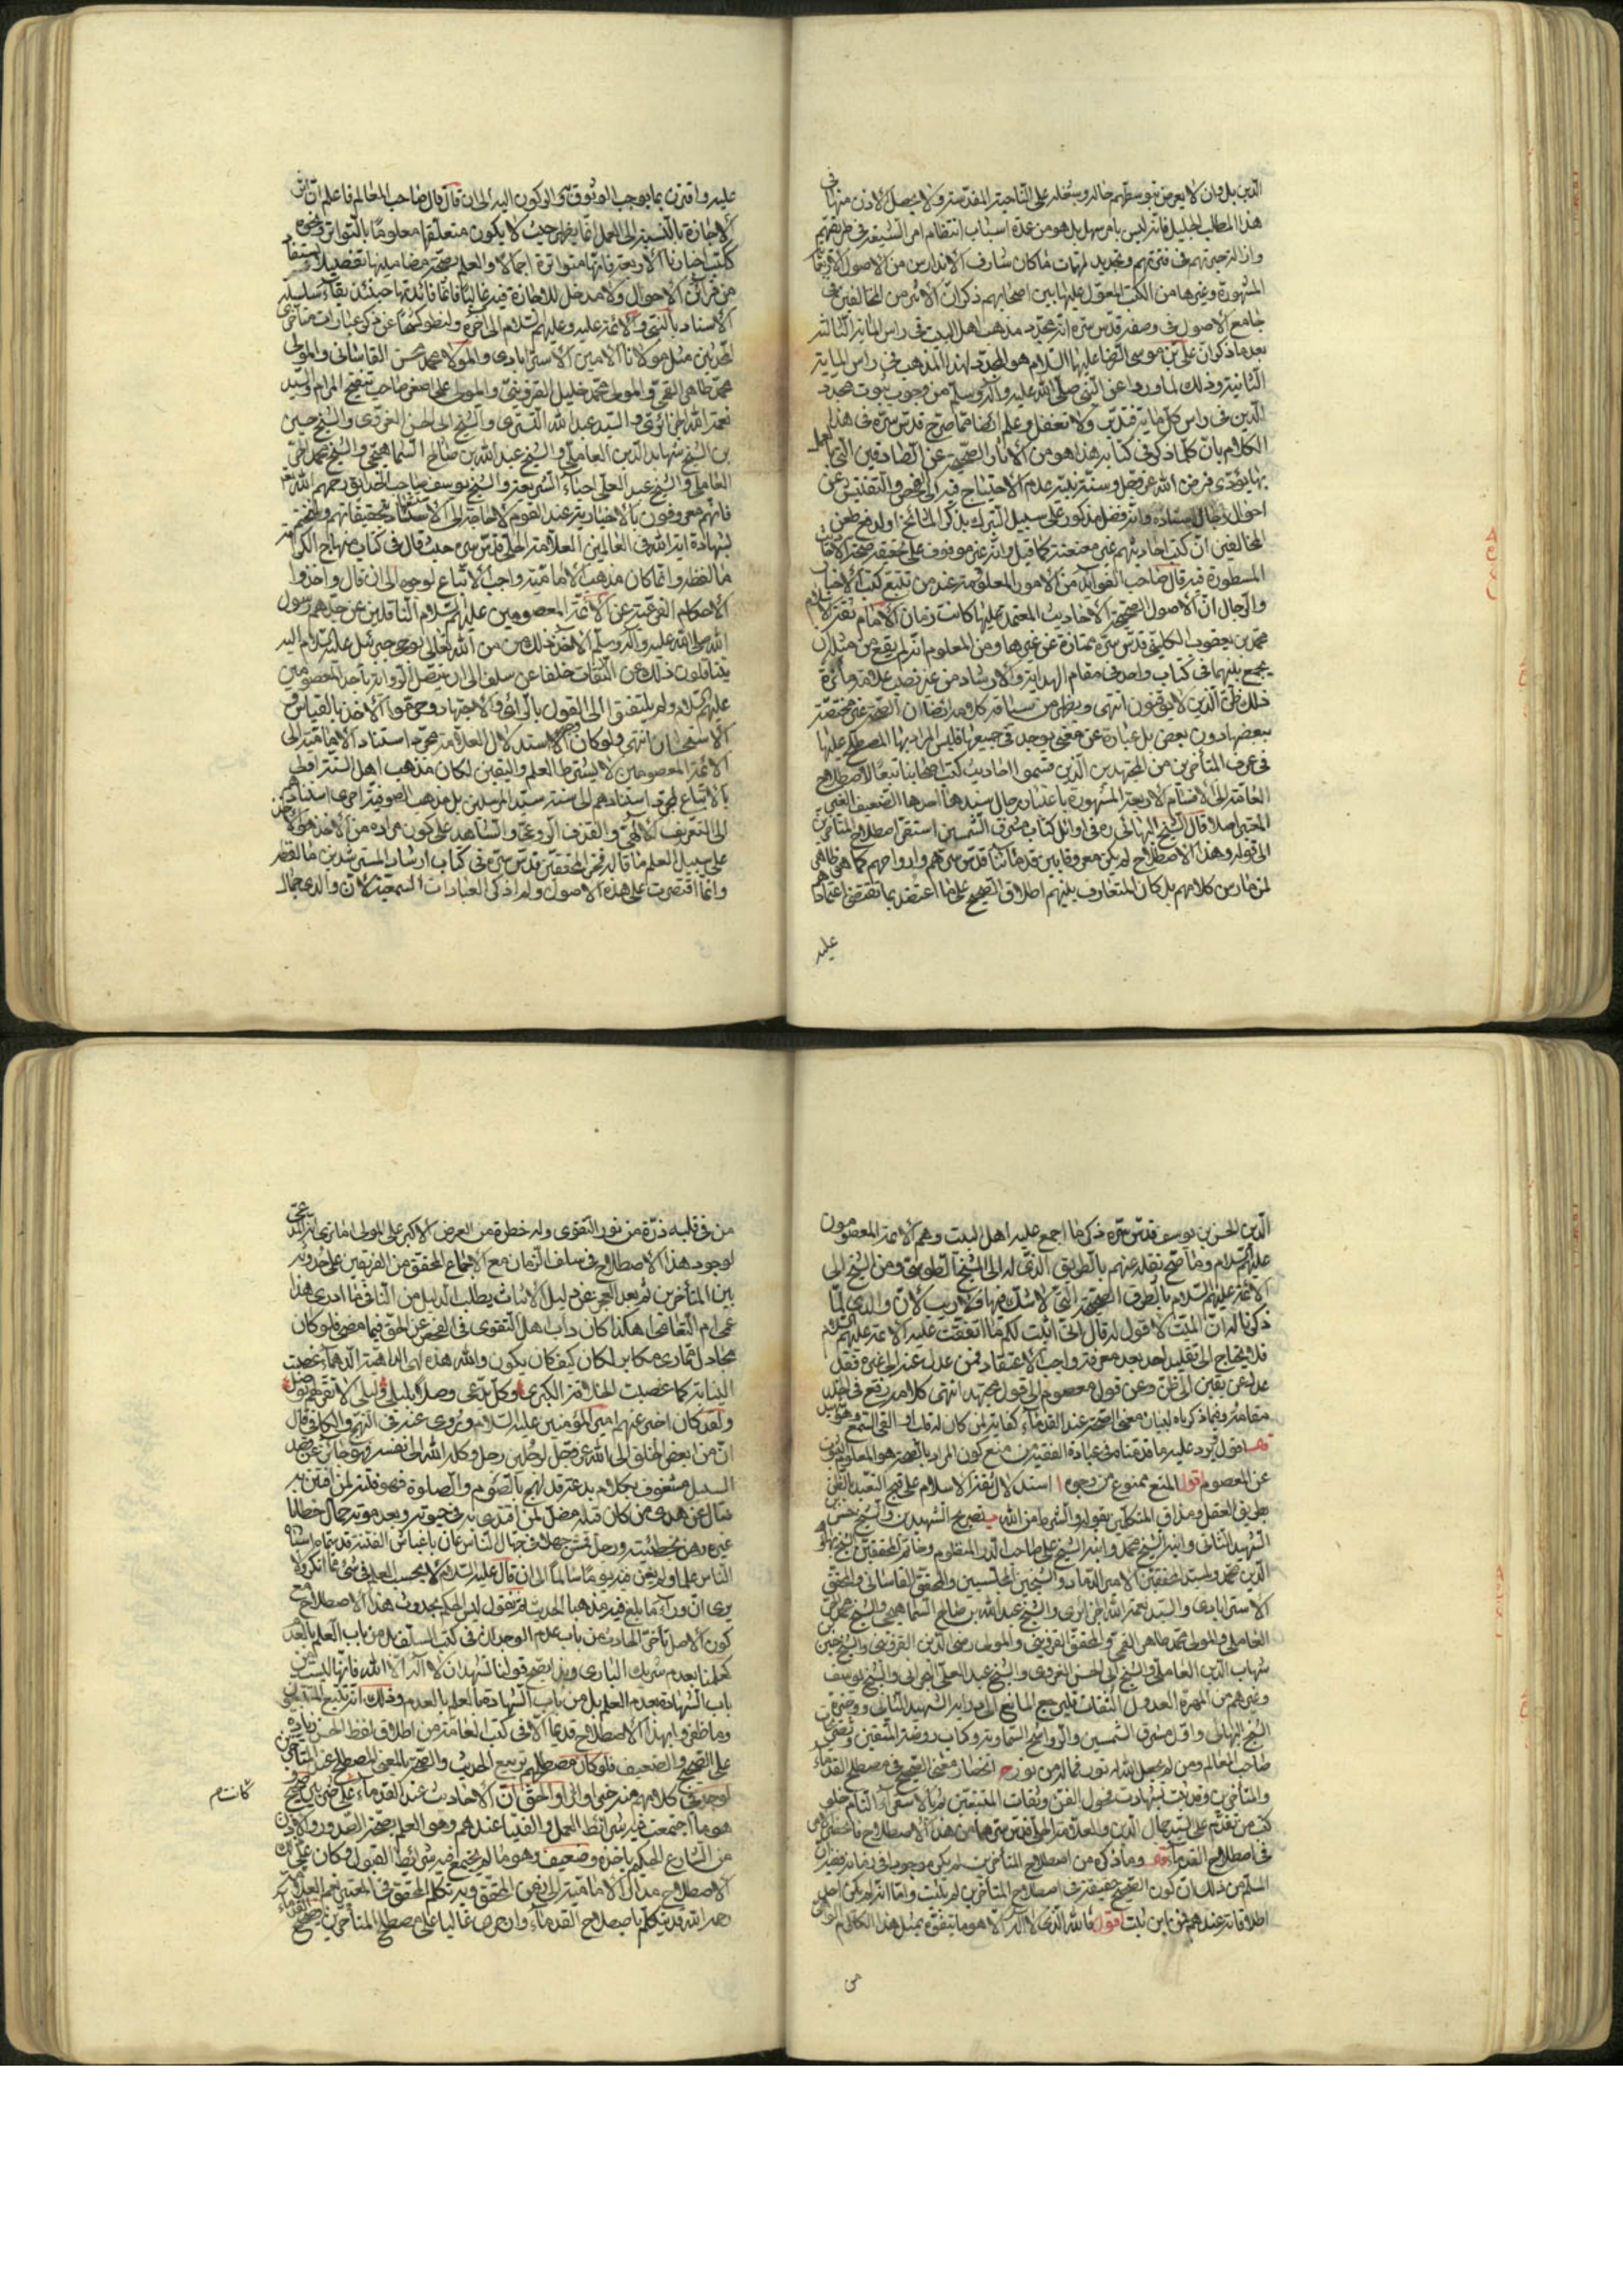 الدين بل وان لا يعرض بتوسطهم حاله وسئله على الناحية المقدسة ولا يحصل الاذن منها في
هذا المطلب الجليل فانه ليس بامر سهل بل هو من عمدة اسباب انتظام امر الشيعة في طريقتهم
المشهورة وغيرها من الكتب المعول عليها بين اصحابهم ذكر ابن الاثير من المخالفين في
جامع الاصول في وصفه قدس سره انه مجدد مذهب اهل البيت في راس المائة الثالثة
بعد ما ذكر ان علي بن موسى الرضا عليهما السلام هو المجدد لهذا المذهب في راس المائة
الثانية وذلك لما رووا عن النبي صلى الله عليه وآله وسلم من وجوب ثبوت مجدد
الدين في راس كل مائة فتدبر ولا تغفل وعلم ايضا مما صرح قدس سره في هذا
الكلام بان كلما ذكر في كتابه هذا هو من الاثار الصحيحة عن الصادقين التي العمل
بها يؤدى فرض الله عز وجل وسنة نبيه عدم الاحتياج فيه الى الفحص والتفتيش عن
احوال رجال اسناده وانه فضل مذكور على سبيل التبرك بذكر المشائخ او لدفع طعن
المخالفين ان كتب احاديثهم غير معنعنة كما قيل وانه غير موقوف على تحقيقه صحة الاثار
المسطورة فيه قال صاحب الفوائد من الامور المعلومة عند من تتبع كتب الاخبار
والرجال ان الاصول الصحيحة الاحاديث المعتمد عليها كانت زمان الامام ثقة الاسلام
محمد بن يعقوب الكليني قدس سره ممتازة عن غيرها ومن المعلوم انه لم يقع من مثله ان
يجمع بينهما في كتاب واحد في مقام الهداية والارشاد من غير نصب علامة مائزة
ذلك ظن الذين لا يوقنون انتهى ويظهر من سياق كلامه ايضا ان الصحة غير مختصة
ببعضها دون بعض بل عبارة عن معنى يوجد في جميعها فليس المراد بها المصطلح عليها
في عرف المتأخرين من المجتهدين الذين قسموا احاديث كتب اصحابنا تبعا لاصطلاح
العامة الى الاقسام الاربعة المشهورة باعتبار رجال سندها احدها الضعيف الغير
المعتبر اصلا قال الشيخ البهائي ره في اوائل كتاب مشرق الشمسين استقر اصطلاح المتأخرين
الى قوله وهذا الاصطلاح لم يكن معروفا بين قدمائنا قدس سرهم وارواحهم كما هو ظاهر
لمن مارس كلامهم بل كان المتعارف بينهم اطلاق الصحيح على ما اعتضد بما يقتضي اعتمادهم
عليه
عليه واقترن بما يوجب الوثوق به والركون اليه الى ان قال قال صاحب المعالم فاعلم ان اثر
الاجازة بالنسبة الى العمل انما يظهر حيث لا يكون متعلقها معلوما بالتواتر ونحوه
ككتب اخبارنا الاربعة فانها متواترة اجمالا والعلم بصحة مضامينها تفصيلا يستفاد
من قرائن الاحوال ولا مدخل للاجازة فيه غالبا فانما فائدتها حينئذ بقاء سلسلة
الاسناد بالنبي والائمة عليه وعليهم السلام الى آخره ولنطو كشحا عن ذكر عبارات متأخري
المحدثين مثل مولانا الامين الاسترابادي والمولا محمد محسن القاساني والمولى
محمد طاهر القمي والمولى محمد خليل القزويني والمولى علي اصغر صاحب تنقيح المرام والسيد
نعمة الله الجزائري والسيد عبد الله التستري والشيخ ابى الحسن الغروي والشيخ حسين
بن الشيخ شهاب الدين العاملي والشيخ عبد الله بن صالح السماهيجي والشيخ محمد الحر
العاملي والشيخ عبد العلي احياء الشريعة والشيخ يوسف صاحب الحدائق رحمهم الله تع
فانهم معروفون بالاخبارية عند القوم لا حاجة الى الاستشهاد بتحقيقاتهم ولنختم
بشهادة اية الله في العالمين العلامة الحلي قدس سره حيث قال في كتاب منهاج الكرامة
ما لفظه وانما كان مذهب الامامية واجب الاتباع لوجوه الى ان قال واخذوا
الاحكام الفرعية عن الائمة المعصومين عليهم السلام الناقلين عن جدهم رسول
الله صلى الله عليه وآله وسلم الاخذ ذلك من الله تعالى بوحي جبرئيل عليه السلام اليه
يتناقلون ذلك عن الثقات خلفا عن سلف الى ان تتصل الرواية باحد المعصومين
عليهم السلام ولم يلتفتوا الى القول بالراي والاجتهاد وحرموا الاخذ بالقياس و
الاستحسان انتهى ولو كان الاستدلال العلامة بمجرد استناد الامامية الى
الائمة المعصومين لا يشترط العلم واليقين لكان مذهب اهل السنة اقطر
بالاتباع لمجرد استنادهم الى سنة سيد المرسلين بل مذهب الصوفية احرى لاستنادهم
الى التعريف الالهي والقذف الروعي والشاهد على كون مراده من الاخذ هو الاخذ
على سبيل العلم ما قاله فخر المحققين قدس سره في كتاب ارشاد المسترشدين ما لفظه
وانما اقتصرت على هذه الاصول ولم اذكر العبادات السمعية لان والدي جمال
الدين الحسن بن يوسف قدس سره ذكر ما اجمع عليه اهل البيت وهم الائمة المعصومون
عليهم السلام وما صح نقله عنهم بالطريق الذي له الى الشيخ الطوسي ومن الشيخ الى
الائمة عليهم السلام بالطرق الصحيحة التي لا شك فيها ولا ريب لان والدي لما
ذكرنا له ان الميت لا قول له قال اني اثبت لكم ما اتفقت عليه الائمة عليهم السلام
فلا يحتاج الى تقليد احد بعد معرفة واجب الاعتقاد فمن عدل عنه الى غيره فقد
عدل عن يقين الى ظن وعن قول معصوم الى قول مجتهد انتهى كلامه رفع في الخلد
مقامه وفيما ذكرناه لبيان معنى الصحة عند القدماء كفاية لمن كان له قلب او القى السمع وهو شهيد
قوله اقول يرد عليه ما قدمنا في عبارة الفقيه من منع كون المراد بالصحة هو المعلوم الثبوت
عن المعصوم اقول المنع ممنوع من وجوه ا استدلال ثقة الاسلام على قبح التعبد بالظن
بطريق العقل ومذاق المتكلمين بقوله والشرط من الله ب تصريح الشهيدين والشيخ حسن
الشهيد الثاني وابنه الشيخ محمد وابنه الشيخ علي صاحب الدر المنظوم وخاتم المحققين الشيخ بهاء
الدين محمد والسيد المحققين الامير الداماد والشيخين المجلسيين والمحقق القاساني والمحقق
الاسترابادي والسيد نعمة الله الجزائري والشيخ عبد الله بن صالح السماهيجي والشيخ محمد الحر
العاملي والمولى محمد طاهر القمي والمحقق القزويني والمولى رضي الدين القزويني والشيخ حسين
شهاب الدين العاملي والشيخ ابى الحسن الغروي والشيخ عبد العلي البحراني والشيخ يوسف
وغيرهم من المهرة العدول الثقات فليرجع المانع الى دراية الشهيد الثاني ووجيزة
الشيخ البهائي واول مشرق الشمسين والرواشح السماوية وكتاب روضة المتقين وتصريح
صاحب المعالم ومن لم يجعل الله له نورا فما له من نور ج انحصار معنى الصحيح في مصطلح القدماء
والمتأخرين وقد ثبت بشهادة فحول الفن وثقات المتتبعين ثم بالاستقراء التام خلو
كتب من تقدم على السيد جمال الدين والعلامة الحلي قدس سرهما من هذا الاصطلاح فانحصر الامر
في اصطلاح القدماء قوله وما ذكره من اصطلاح المتأخرين لم يكن موجودا في زمانه ففيه ان
المسلم من ذلك ان كون الصحيح حقيقة في اصطلاح المتأخرين لم يثبت واما انه لم يكن احد
اطلاقاته عندهم فمن اين ثبت اقول فالله الذي لا اله الا هو ما يتفوه بمثل هذا الكلام
من
من في قلبه ذرة من نور التقوى وله خطرة من العرض الاكبر على المولى اما ترى انه المدعي
لوجود هذا الاصطلاح في سالف الزمان مع الاجماع المحقق من الفريقين على حدوثه
بين المتأخرين ثم بعد العجز عن دليل الاثبات يطلب الدليل من النافي ما ادري هذا
غرام التقاضي هكذا كان داب اهل التقوى في الفحص عن الحق فيما مضى فلو كان
مجادل مماري مكابر لكان كيف كان يكون والله هذه لهي الداهية الدهماء غصبت
النيابة كما غصبت الخلافة الكبرى وكل يدعي وصلا بليلى وليلى لا تقر لهم بوصل
ولقد كان اخبر عنهم امير المؤمنين عليه السلام وروى عنه في النهج والكافي قال
ان من ابغض الخلق الى الله عز وجل لرجلين رجل وكله الله الى نفسه فهو جائر عن قصد
السبيل مشغوف بكلام بدعة قد لهج بالصوم والصلوة فهو فتنة لمن افتتن به
ضال عن هدى من كان قبله مضل لمن اقتدى به في حيوته وبعد موته حمال خطايا
غيره رهن بخطيئته ورجل قمش جهلا في جهال الناس عان باغباش الفتنة قد سماه اشباه
الناس عالما ولم يغن فيه يوما سالما الى ان قال عليه السلام لا يحسب العلم في شئ مما انكر ولا
يرى ان وراء ما بلغ فيه مذهبا الحديث ثم نقول ليس الحكم بحدوث هذا الاصطلاح مع
كون الاصل تأخر الحادث من باب عدم الوجدان في كتب السلف بل من باب العلم بالعدم
كعلمنا بعدم شريك الباري وبه يصح قولنا نشهد ان لا اله الا الله فانها ليست من
باب الشهادة بعدم العلم بل من باب الشهادة بالعلم بالعدم وذلك انه تتبع المتتبعون
وما ظفروا بهذا الاصطلاح قديما الا في كتب العامة من اطلاق لفظ الحسن زيادة
على الصحيح والضعيف فلو كان مصطلحهم تربيع الحديث والصحة بالمعنى المصطلح عند المتأخرين
لوجد في كلامهم منه رخى او اثر او الحق ان الاحاديث عند القدماء على ضربين صحيح
هو ما اجتمعت فيه شرائط العمل والفتيا عندهم وهو العلم بصحة الصدور والاذن
من الشارع الحكيم باخذه وضعيف وهو ما لم يجتمع فيه شرائط القبول وكان على ذلك
الاصطلاح مدار الامامية الى زمن المحقق وبه تكلم المحقق في المعتبر نعم العلامة
رحمه الله قد يتكلم باصطلاح القدماء وان جرى غالبا على مصطلح المتأخرين فصحيح القدماء
كانت م